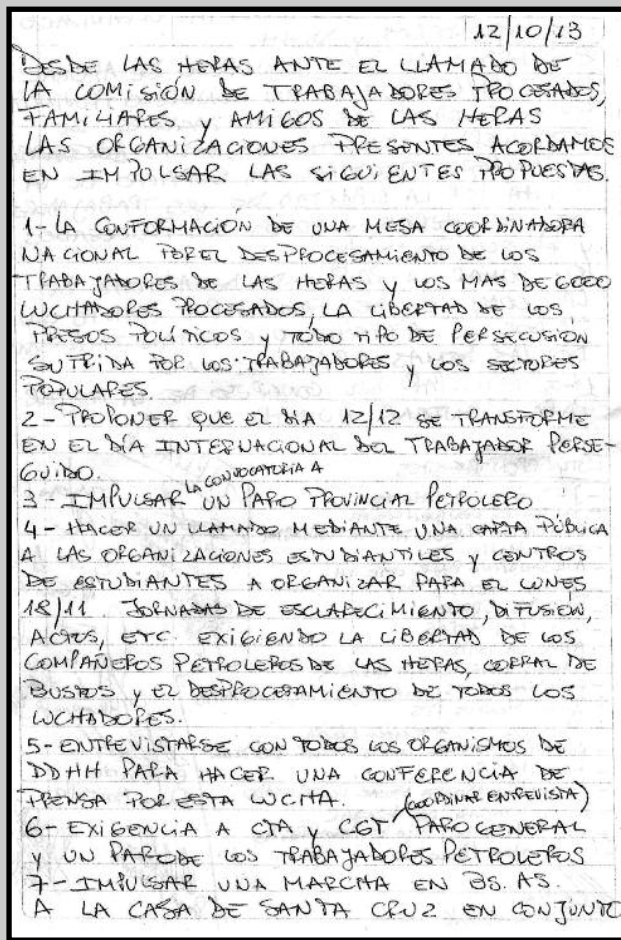 12/10/13
DESDE LAS HERAS ANTE EL LLAMADO DE
LA COMISIÓN DE TRABAJADORES PROCESADOS,
FAMILIARES Y AMIGOS DE LAS HERAS
LAS ORGANIZACIONES PRESENTES ACORDAMOS
EN IMPULSAR LAS SIGUIENTES PROPUESTAS.
1- LA CONFORMACIÓN DE UNA MESA COORDINADORA
NACIONAL POR EL DESPROCESAMIENTO DE LOS
TRABAJADORES DE LAS HERAS Y LOS MAS DE 6000
LUCHADORES PROCESADOS, LA LIBERTAD DE LOS
PRESOS POLÍTICOS Y TODO TIPO DE PERSECUSIÓN
SUFRIDA POR LOS TRABAJADORES Y LOS SECTORES
POPULARES.
2- PROPONER QUE EL DIA 12/12 SE TRANSFORME
EN EL DÍA INTERNACIONAL DEL TRABAJADOR PERSE-
GUIDO.
3- IMPULSAR LA CONVOCATORIA A UN PARO PROVINCIAL PETROLERO
4- HACER UN LLAMADO MEDIANTE UNA CARTA PÚBLICA
A LAS ORGANIZACIONES ESTUDIANTILES Y CENTROS
DE ESTUDIANTES A ORGANIZAR PARA EL LUNES
18/11 JORNADAS DE ESCLARECIMIENTO, DIFUSIÓN,
ACTOS, ETC. EXIGIENDO LA LIBERTAD DE LOS
COMPAÑEROS PETROLEROS DE LAS HERAS, CORRAL DE
BUSTOS Y EL DESPROCESAMIENTO DE TODOS LOS
LUCHADORES.
5- ENTREVISTARSE CON TODOS LOS ORGANISMOS DE
DDHH PARA HACER UNA CONFERENCIA DE
PRENSA POR ESTA LUCHA.
6- EXIGENCIA A CTA Y CGT (COORDINAR ENTREVISTA) PARO GENERAL
Y UN PARO DE LOS TRABAJADORES PETROLEROS
7- IMPULSAR UNA MARCHA EN BS. AS.
A LA CASA DE SANTA CRUZ EN CONJUNTO